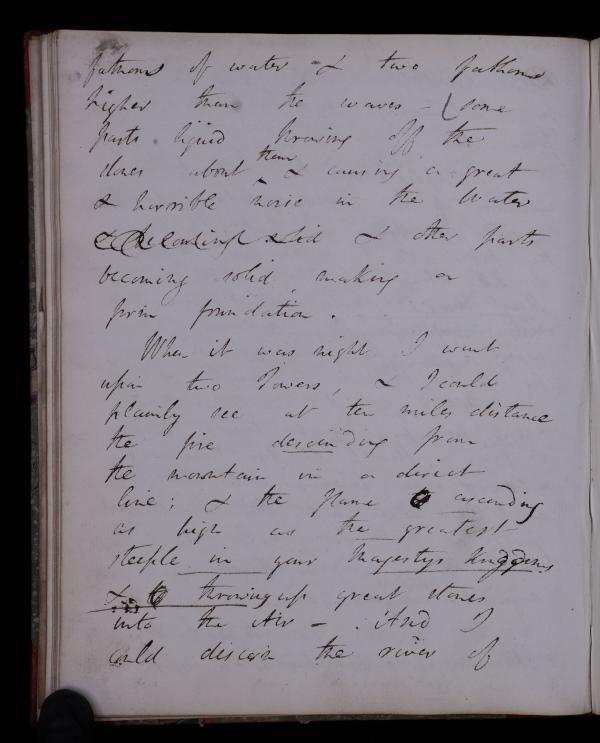 fathoms of water & two fathoms
higher than the waves – (some
parts liquid throwing off the
stones about them & causing a great
& horrible noise in the water
slid & other parts
becoming solid, making a
firm foundation.
When it was night I went
upon two Towers, & I could
plainly see at ten miles distance
the fire descending from
the mountain in a direct
line; & the flame ascending
as high as the greatest
steeple in your Majestys Kingdoms
& throwing up great stones
into the Air – : And I
could discern the river of